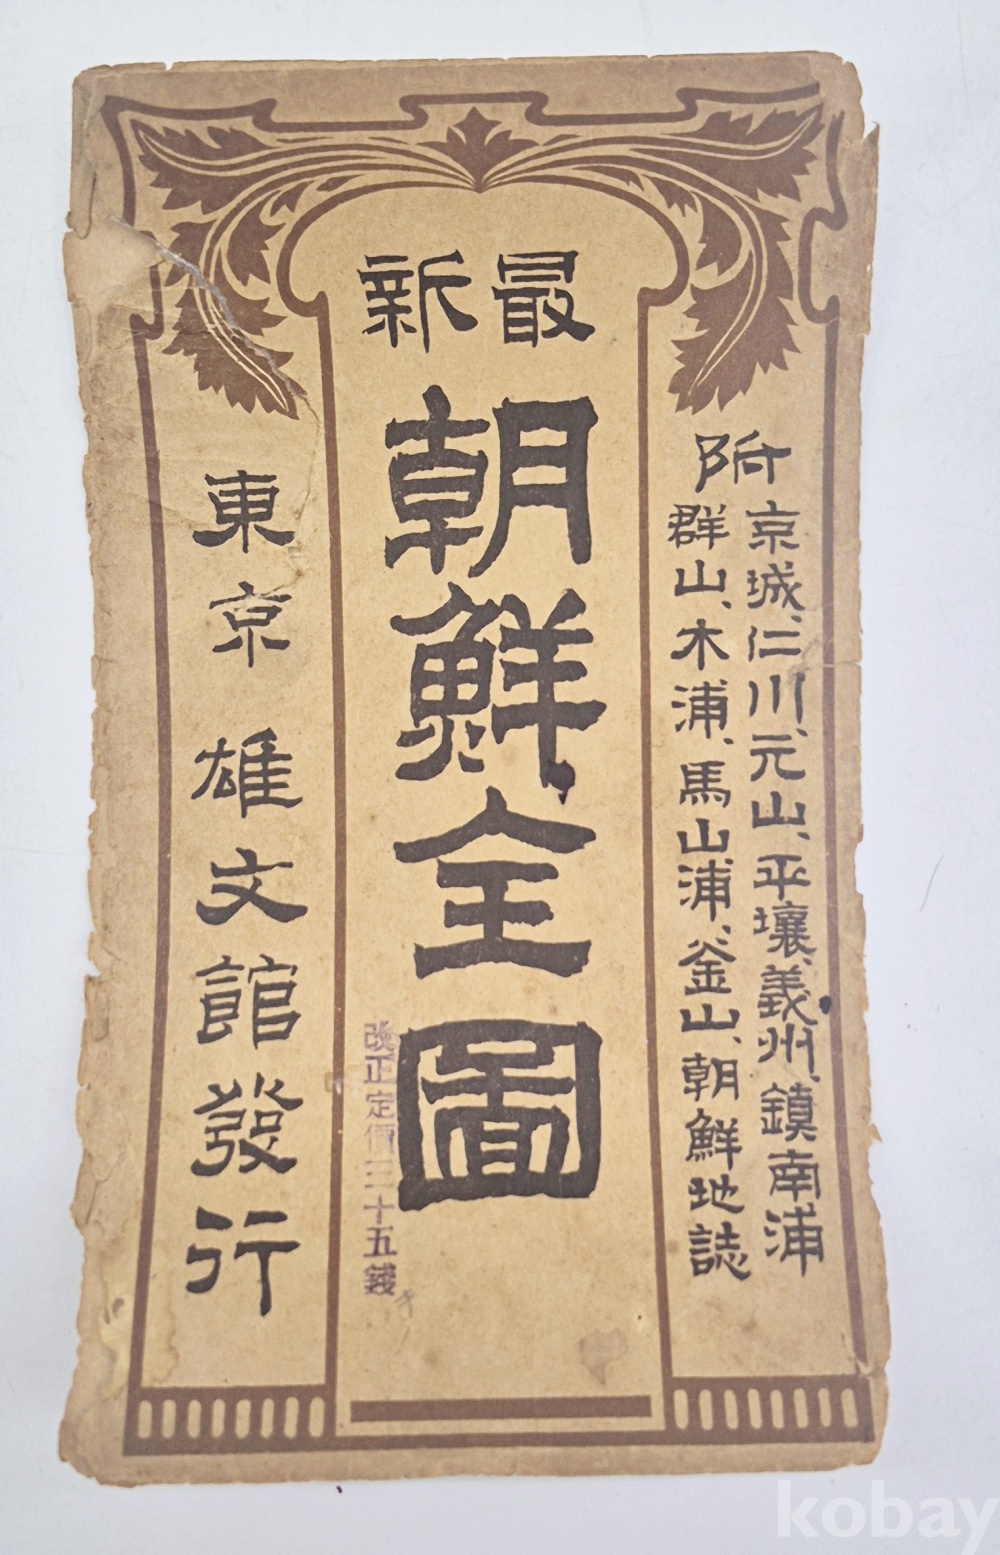 最新
附
京城、仁川、元山、平壤、義州、鎭南浦
群山、木浦、馬山浦、釜山、朝鮮地誌
朝鮮全圖
改正定價三十五錢
東京 雄文館發行
kobay